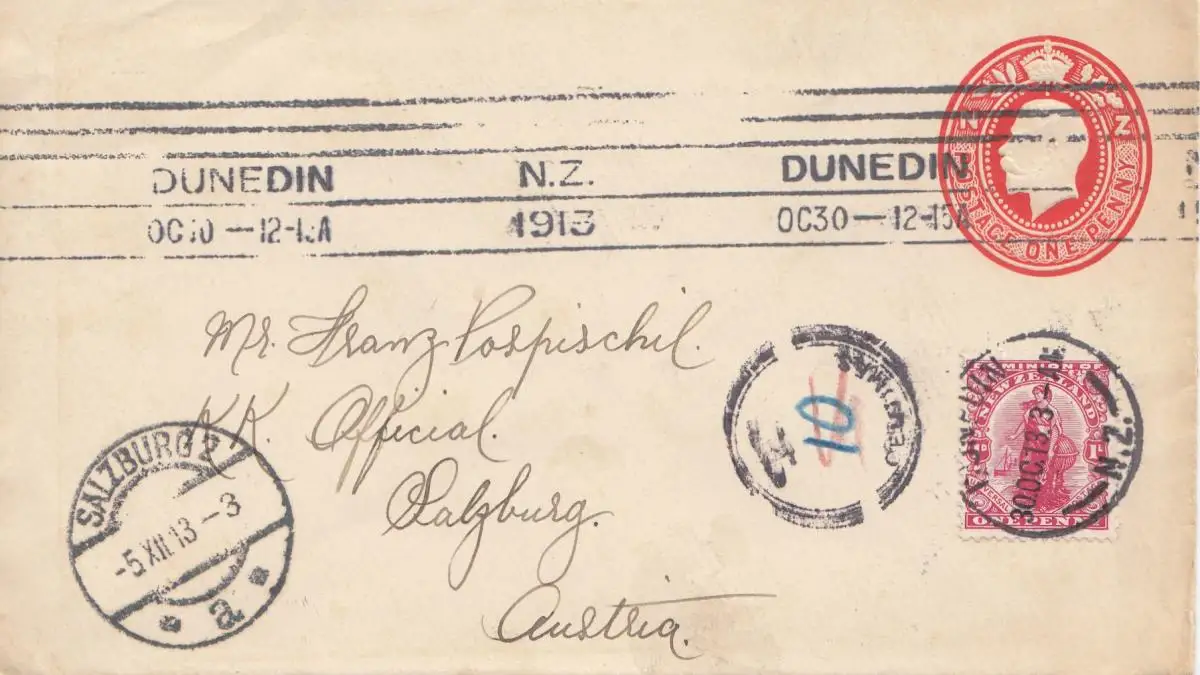 DUNEDIN N.Z. DUNEDIN
1913 OC30 — 12-15A
N Z
POSTAGE ONE PENNY
Mr. Franz Pospischil.
K.K. Official.
Salzburg.
Austria.
SALZBURG 2
-5 XII 13 - 3
a
10
DUNEDIN
N.Z.
30 OC 13 3-
DOMINION OF
NEW ZEALAND
ONE PENNY